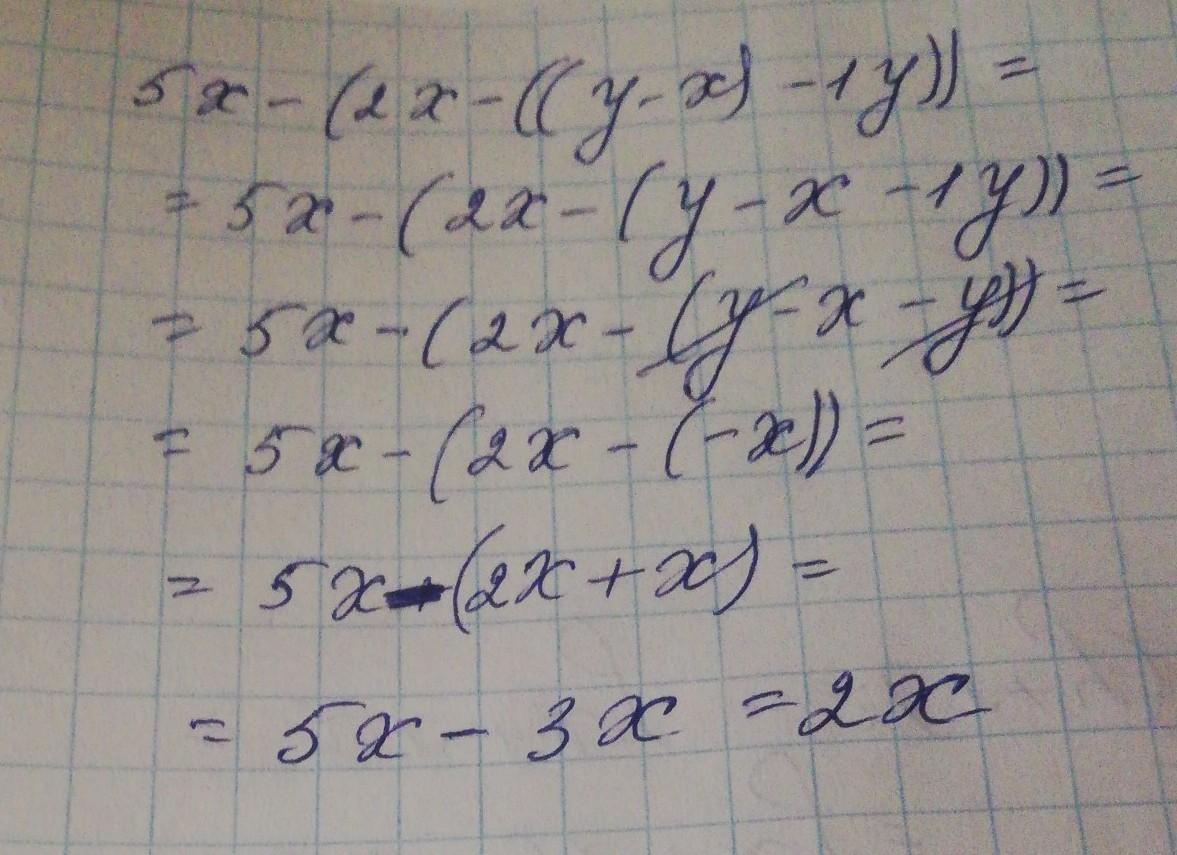 5x - (2x - ((y - x) - 1y)) =
= 5x - (2x - (y - x - 1y)) =
= 5x - (2x - (y - x - y)) =
= 5x - (2x - (-x)) =
= 5x - (2x + x) =
= 5x - 3x = 2x